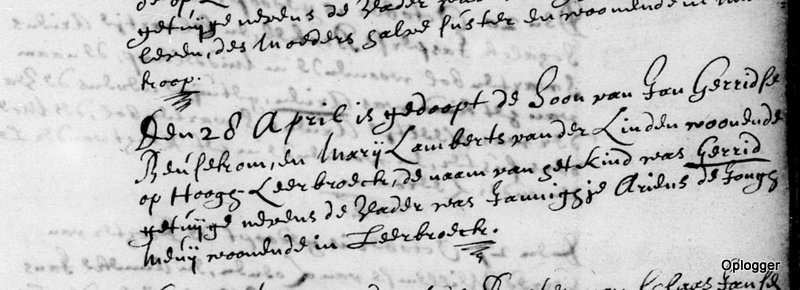 getuijge nevens de Vader was
leren, des Moeders halve suster en woonende in
koop.
Den 28 April is gedoopt de Soon van Jan Gerridse
Beusekom, en Marij Lamberts van der Linden woonende
op Hoogh-Leerbroeck, de naam van het kind was Gerrid
getuijge nevens de Vader was Jannighje Ariens de Jongh
meuij woonende in Leerbroeck.
Oplogger